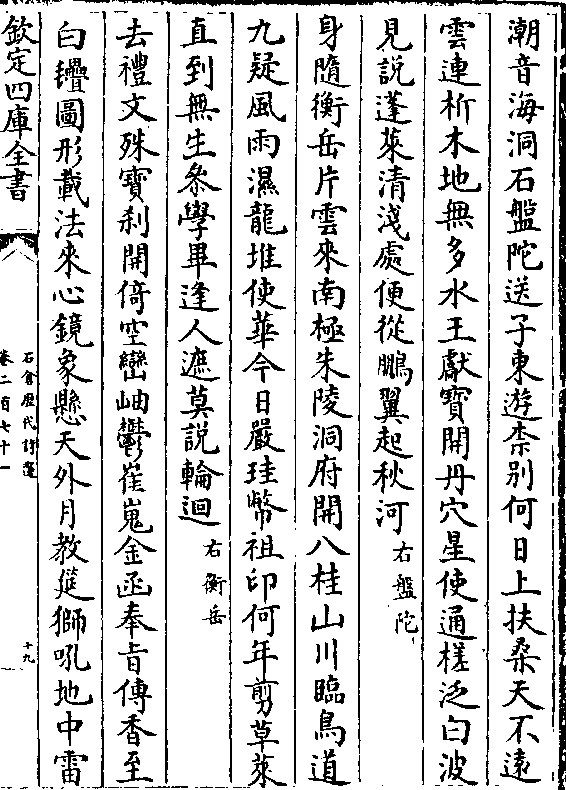 潮音海洞石盤陀送子東遊柰別何日上扶桑天不遠
雲連析木地無多水王獻寶開丹穴星使通槎泛白波
見說蓬萊清淺處便從鵬翼起秋河右盤陀
身隨衡岳片雲來南極朱陵洞府開八桂山川臨鳥道
九疑風雨濕龍堆使華今日嚴珪幣祖印何年剪草萊
直到無生叅學畢逢人遮莫說輪迴右衡岳
去禮文殊寶刹開倚空巒岫鬱崔嵬金函奉旨傳香至
白㲲圖形載法來心鏡象懸天外月教筵獅吼地中雷
欽定四庫全書
石倉歷代詩選
卷二百七十一
十九